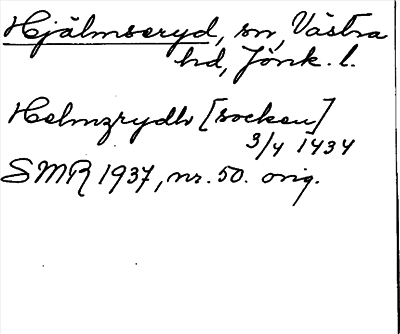 Hjälmseryd, sn, Västra
hd, Jönk. l.
Helmzrydh [socken]
3/4 1434
SMR 1937, nr. 50. orig.